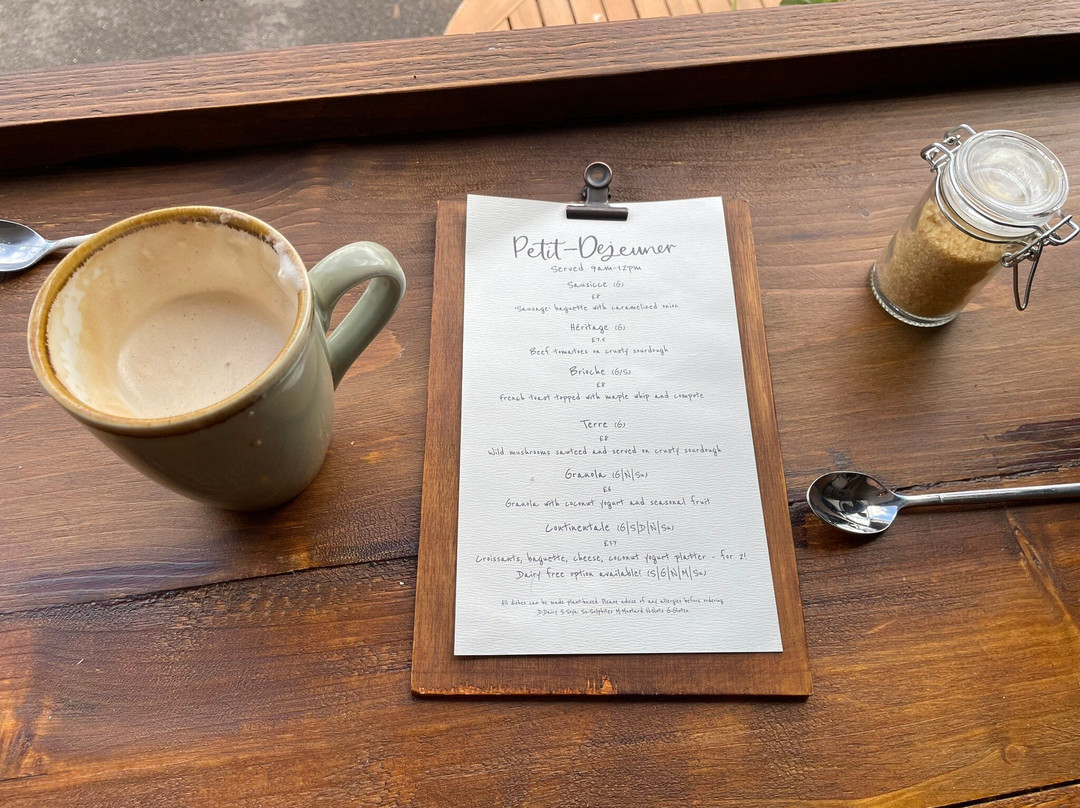 Petit-Dejeuner
Served 9am-12pm
Saucisse (G)
£8
'Sausage' baguette with caramelised onion
Héritage (G)
£7.5
Beef tomatoes on crusty sourdough
Brioche (G/S)
£8
French toast topped with maple whip and compote
Terre (G)
£8
Wild mushrooms sauteed and served on crusty sourdough
Granola (G|N|Su)
£6
Granola with coconut yogurt and seasonal fruit
Continentale (G|S|D|N|Su)
£17
Croissants, baguette, cheese, coconut yogurt platter - for 2!
Dairy free option available! (S|G|N|M|Su)
All dishes can be made plant-based. Please advise of any allergies before ordering
D:Dairy S:Soya Su:Sulphites M:Mustard N:Nuts G:Gluten